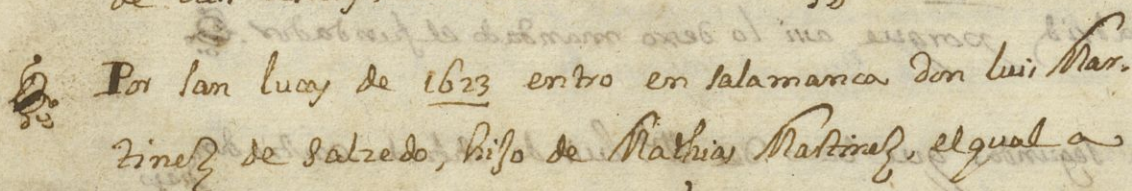 Por san lucas de 1623 entro en salamanca don luis Mar-
tinez de Salzedo, hijo de Mathias Martinez, el qual a